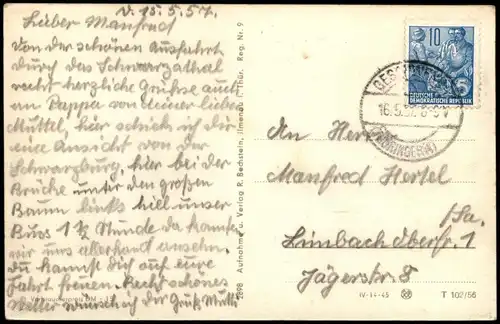 d. 15.5.57.
Lieber Manfred
Von der schönen Ausfahrt
durch das Schwarzathal
recht herzliche Grüße auch
an Pappa von deiner lieben
Mutti, hier schick ich dir
eine Ansicht von der
Schwarzburg, hier bei der
Brücke unter den großen
Baum links hielt unser
Buss 1½ Stunde da konnten
wir uns allerhand ansehen.
Du kannst dich auf eure
Fahrt freuen. Recht schönes
Wetter wünscht dir Gruß Mutti
Verbraucherpreis DM
2898 Aufnahme u. Verlag R. Bechstein, Ilmenau i. Thür. Reg. Nr. 9
10
5
DEUTSCHE
DEMOKRATISCHE REPUBLIK
16.5.57.
(THÜRINGEN)
An Herrn
Manfred Hertel
Limbach Oberfr. 1
/Sa.
Jägerstr. 8
IV-14-45
T 102/56